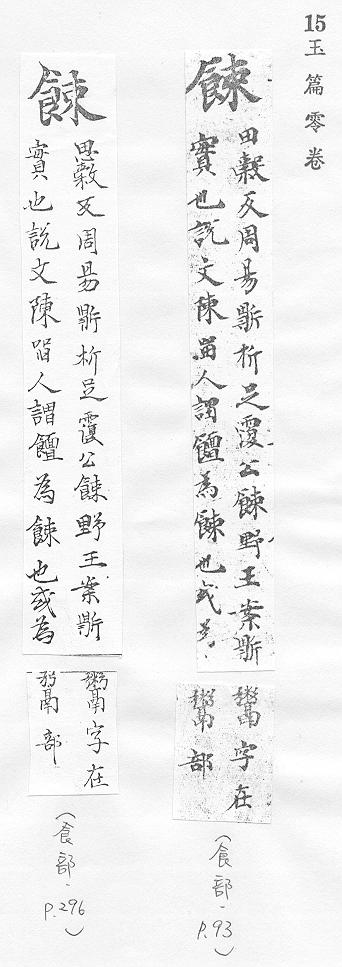 15玉篇零卷
餗
田穀反周易鼎折足覆公餗野王案鼎
實也說文陳留人謂饘為餗也或為
鬻字在
䰜部
(食部. P.93)
餗
思穀反周易鼎折足覆公餗野王案鼎
實也說文陳留人謂饘為餗也或為
鬻字在
䰜部
(食部. P.296)